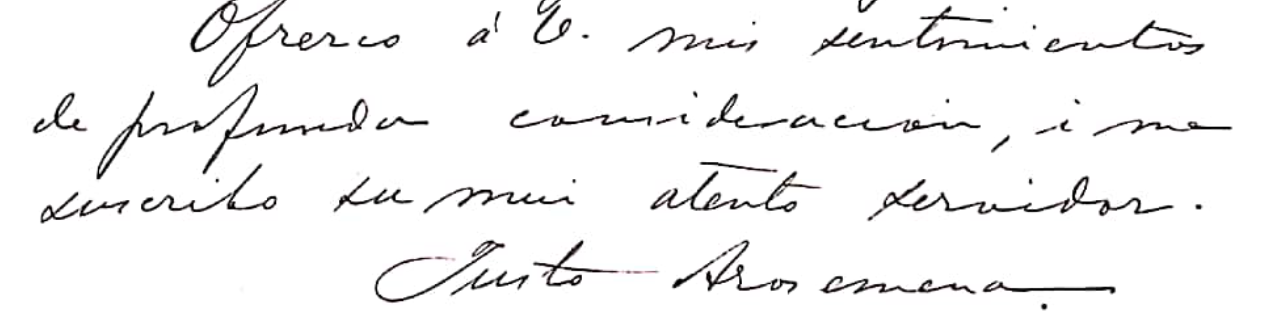 Ofrezco á V. mis sentimientos
de profunda consideracion, i me
suscribo su mui atento servidor.
Justo Arosemena.